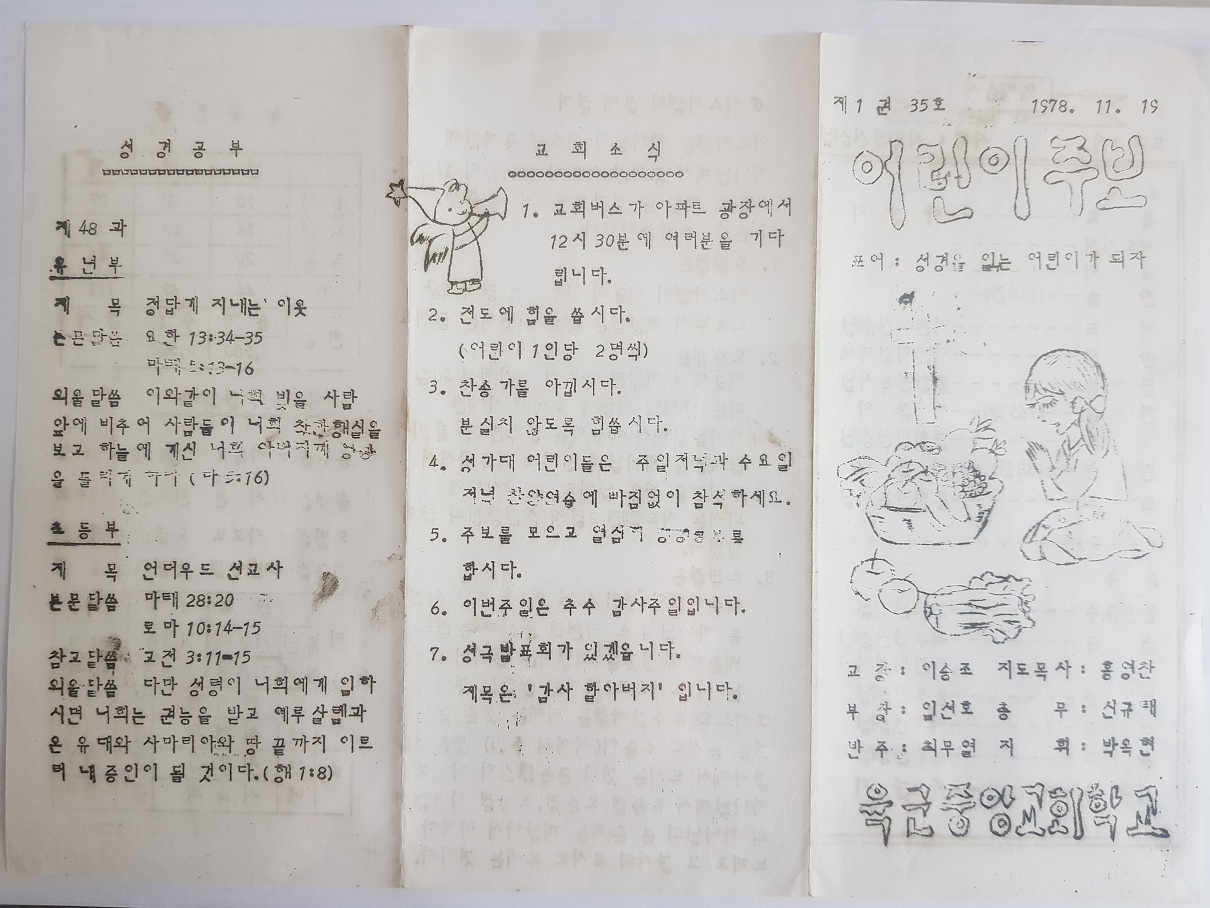 성경공부
제 48 과
유년부
제 목 정답게 지내는 이웃
본문말씀 요한 13:34-35
마태 5:13-16
외울말씀 이와같이 너희 빛을 사람
앞에 비추어 사람들이 너희 착한행실을
보고 하늘에 계신 너희 아버지께 영광
을 돌리게 하라 (마 5:16)
초등부
제 목 언더우드 선교사
본문말씀 마태 28:20
로마 10:14-15
참고말씀 고전 3:11-15
외울말씀 다만 성령이 너희에게 임하
시면 너희는 권능을 받고 예루살렘과
온 유대와 사마리아와 땅 끝까지 이르
러 내 증인이 될 것이다.(행 1:8)
교회소식
1. 교회버스가 아파트 광장에서
12시 30분에 여러분을 기다
립니다.
2. 전도에 힘을 씁시다.
(어린이 1인당 2명씩)
3. 찬송가를 아낍시다.
분실치 않도록 힘씁시다.
4. 성가대 어린이들은 주일저녁과 수요일
저녁 찬양연습에 빠짐없이 참석하세요.
5. 주보를 모으고 열심히
합시다.
6. 이번주일은 추수 감사주일입니다.
7. 성극발표회가 있겠읍니다.
제목은 '감사 할아버지' 입니다.
제 1 권 35호 1978. 11. 19
어린이 주보
표어 : 성경을 읽는 어린이가 되자
교 장 : 이승조 지도목사 : 홍영찬
부 장 : 임선호 총 무 : 신규태
반 주 : 최무열 지 휘 : 박옥현
육군중앙교회학교